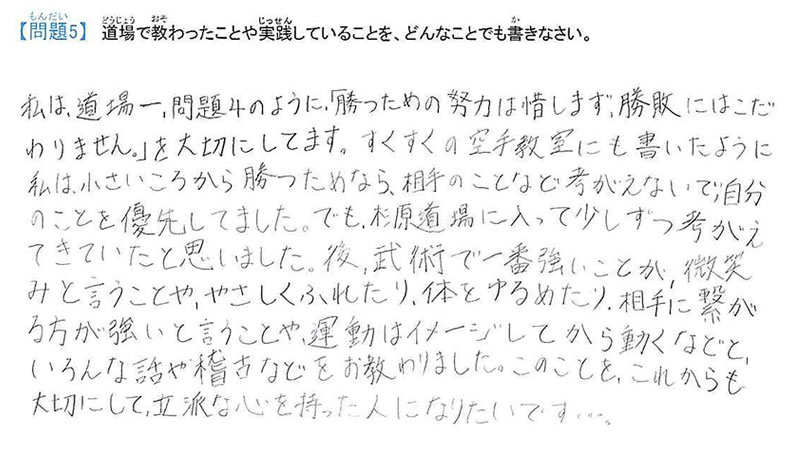 【問題5】 道場で教わったことや実践していることを、どんなことでも書きなさい。
私は、道場一、問題4のように、「勝つための努力は惜しまず、勝敗にはこだ
わりません。」を大切にしてます。すくすくの空手教室にも書いたように
私は、小さいころから勝つためなら、相手のことなど考がえないで、自分
のことを優先してました。でも、杉原道場に入って少しずつ考がえ
てきていたと思いました。後、武術で一番強いことが、微笑
みと言うことや、やさしくふれたり、体をゆるめたり、相手に繋が
る方が強いと言うことや、運動はイメージしてから動くなどと、
いろんな話や稽古などをお教わりました。このことを、これからも
大切にして、立派な心を持った人になりたいです…。